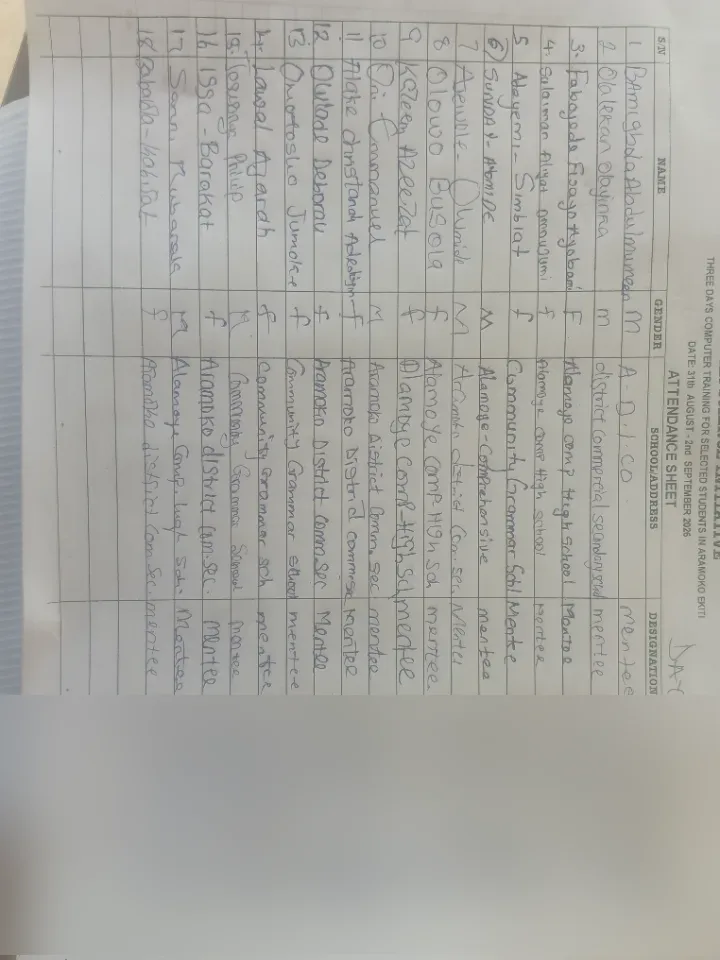 THREE DAYS COMPUTER TRAINING FOR SELECTED STUDENTS IN ARAMOKO EKITI
DATE: 31th AUGUST - 2nd SEPTEMBER 2026
ATTENDANCE SHEET
DAY
S/N NAME GENDER SCHOOL/ADDRESS DESIGNATION
1 BAmigbola Abdulmumeen M A-D.I.CO mentee
2 Olalekan Olayinka m district commercial secondary mentee
3. Fabayode Fisayo Ayobami F Alamoye comp High School Mentee
4. Sulaiman Aliyat f Alamoye comp High School mentee
5 Adeyemi - Simbiat f Community Grammar Schl Mentee
6 SUNDAY - M Alamoye - Comprehensive mentee
7 M district Com. sec.
8 Olowo BUSOLA f Alamoye comp HIGH Sch mentee.
9 Kareem AZeeZat f Comp-High sch mentee
10 Oni Emmanuel M Aramoko District Comm. sec mentee
11 Alake f Aramoko District mentee
12 Deborah f ARAMOKO DISTRICT Comm.Sec Mentee
13 Omotosho Jumoke f Community Grammar School mentee
14. Lawal f Community Grammar sch mentee
15. Philip M Community Grammar School mentee
16 Issa - Barakat f ARAMOKO district Com.sec. mentee
17. Sanni M Alamoye Comp. high Sch. Mentee
18 f Aramoko district Com.Sec. mentee